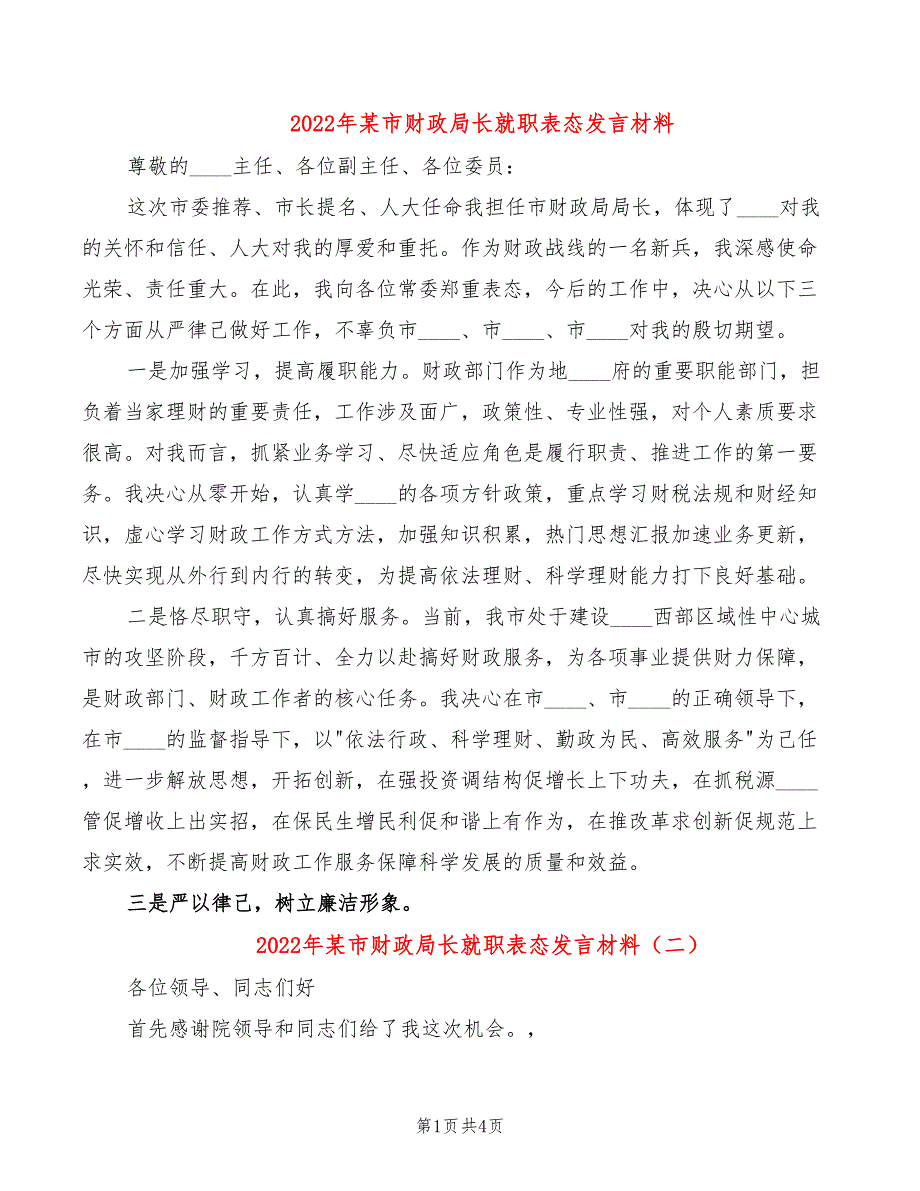 2022年某市财政局长就职表态发言材料
尊敬的____主任、各位副主任、各位委员：
这次市委推荐、市长提名、人大任命我担任市财政局局长，体现了____对我
的关怀和信任、人大对我的厚爱和重托。作为财政战线的一名新兵，我深感使命
光荣、责任重大。在此，我向各位常委郑重表态，今后的工作中，决心从以下三
个方面从严律己做好工作，不辜负市____、市____、市____对我的殷切期望。
一是加强学习，提高履职能力。财政部门作为地____府的重要职能部门，担
负着当家理财的重要责任，工作涉及面广，政策性、专业性强，对个人素质要求
很高。对我而言，抓紧业务学习、尽快适应角色是履行职责、推进工作的第一要
务。我决心从零开始，认真学____的各项方针政策，重点学习财税法规和财经知
识，虚心学习财政工作方式方法，加强知识积累，热门思想汇报加速业务更新，
尽快实现从外行到内行的转变，为提高依法理财、科学理财能力打下良好基础。
二是恪尽职守，认真搞好服务。当前，我市处于建设____西部区域性中心城
市的攻坚阶段，千方百计、全力以赴搞好财政服务，为各项事业提供财力保障，
是财政部门、财政工作者的核心任务。我决心在市____、市____的正确领导下，
在市____的监督指导下，以"依法行政、科学理财、勤政为民、高效服务"为己任
，进一步解放思想，开拓创新，在强投资调结构促增长上下功夫，在抓税源____
管促增收上出实招，在保民生增民利促和谐上有作为，在推改革求创新促规范上
求实效，不断提高财政工作服务保障科学发展的质量和效益。
三是严以律己，树立廉洁形象。
2022年某市财政局长就职表态发言材料（二）
各位领导、同志们好
首先感谢院领导和同志们给了我这次机会。，
第1页 共4页